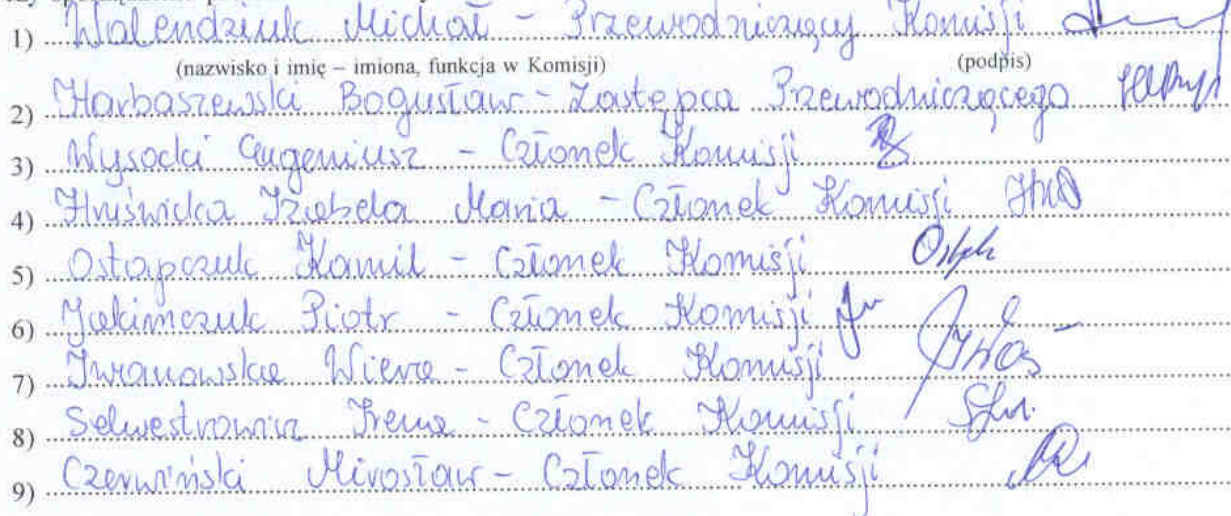 1) Walendziuk Michał - Przewodniczący Komisji
(nazwisko i imię – imiona, funkcja w Komisji) (podpis)
2) Harbaszewski Bogusław - Zastępca Przewodniczącego
3) Wysocki Eugeniusz - Członek Komisji
4) Hruświcka Izabela Maria - Członek Komisji
5) Ostapczuk Kamil - Członek Komisji
6) Jakimczuk Piotr - Członek Komisji
7) Iwanowska Wiera - Członek Komisji
8) Selwestrowicz Irena - Członek Komisji
9) Czerwiński Mirosław - Członek Komisji